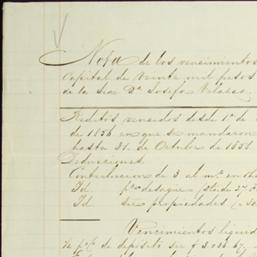 Nota de los vencimientos
Capital de veinte mil pesos
de la Sra. Da. Josefa Velasco
Reditos vencidos desde 1o. de
de 1856 en que se mandaron
hasta 31. de Octubre de 1858.
Deducciones.
Contribucion de 3 al m. en
Id. desagüe
Id. propiedades
Vencimientos liquid
de deposito